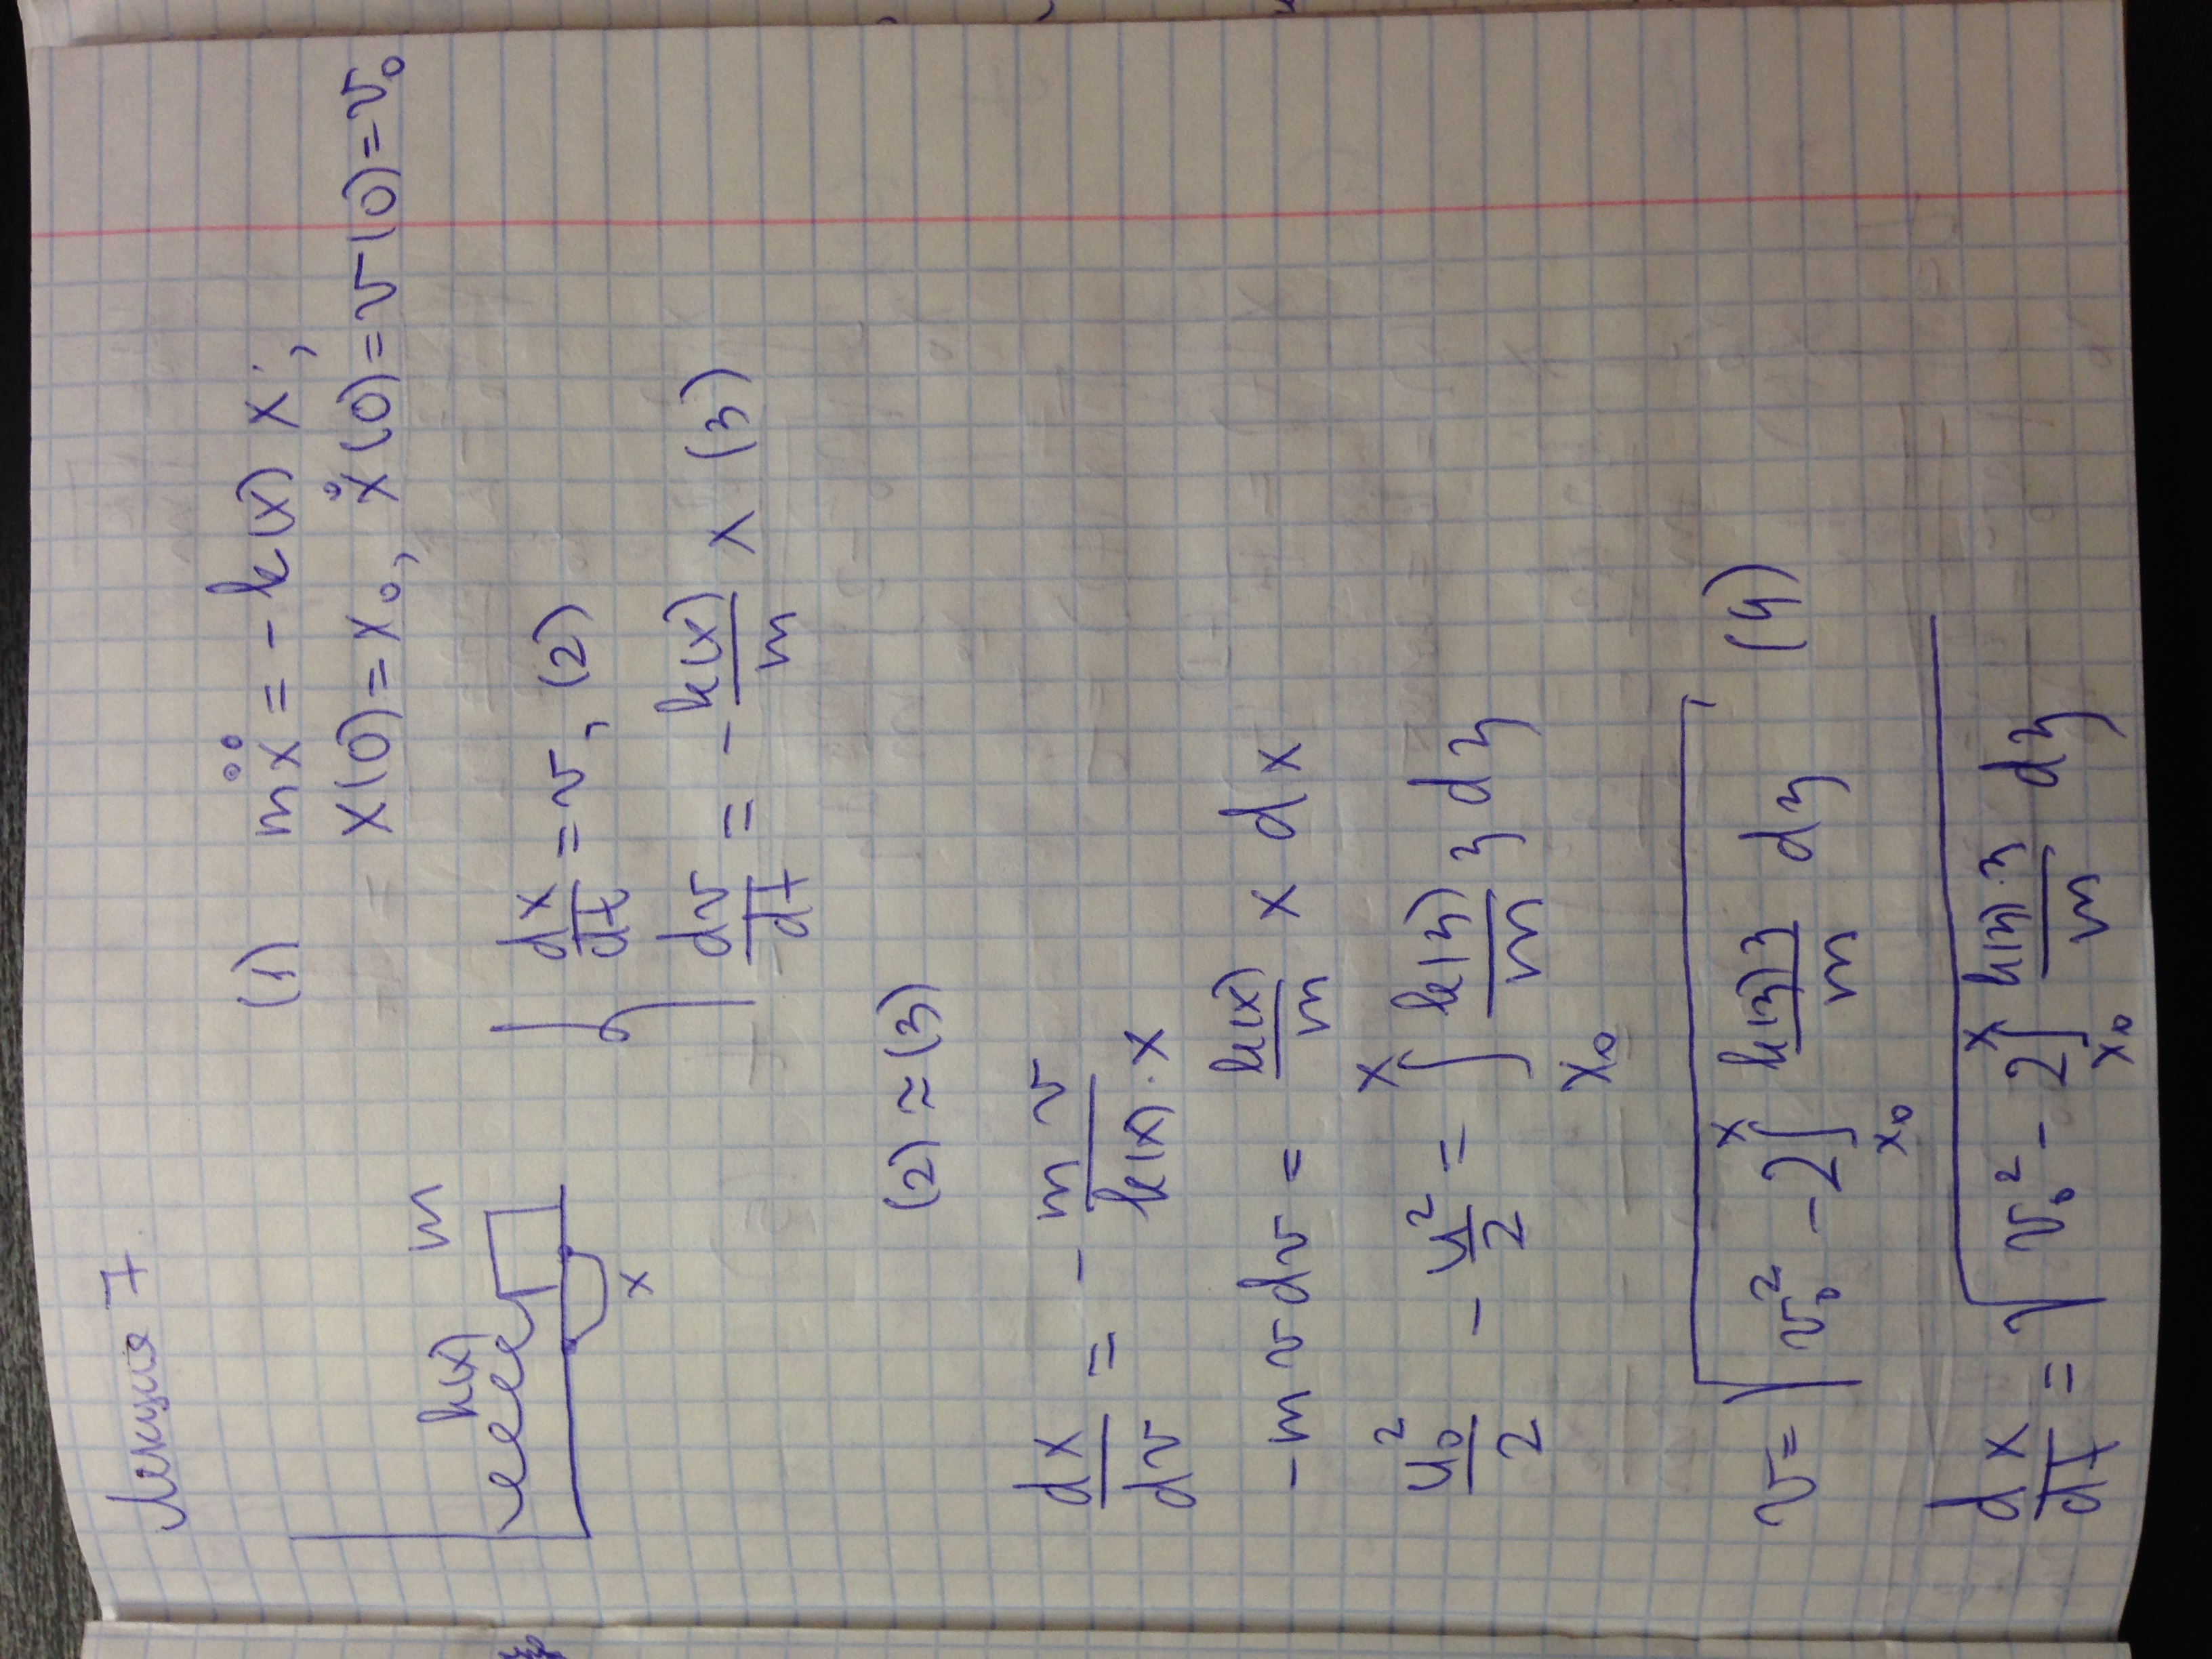 Лекция 7.
(1) mẍ = - k(x) x ;
x(0) = x₀, ẋ(0) = v(0) = v₀
m
k(x)
x
{ dx/dt = v, (2)
dv/dt = - k(x)/m x (3)
(2) ≈ (3)
dx/dv = - m v/k(x)·x
- m v dv = k(x)/m x dx
u₀²/2 - u²/2 = ∫ₓ₀ˣ k(з)/m з dз
v = √(v₀² - 2∫ₓ₀ˣ k(з)з/m dз) (4)
dx/dt = √(v₀² - 2∫ₓ₀ˣ k(з)·з/m dз)